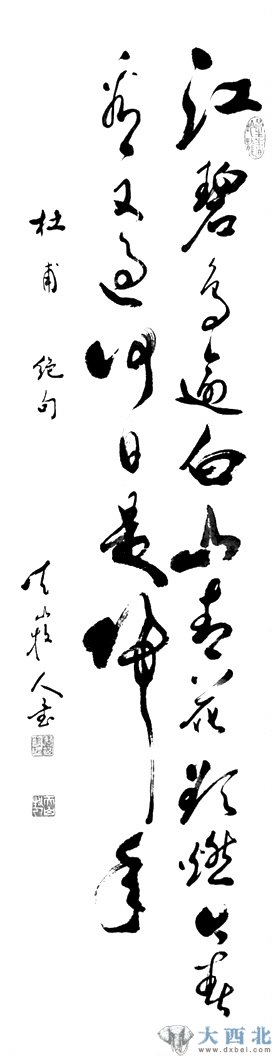 江碧鸟逾白山青花欲燃今春
看又过何日是归年
杜甫 绝句
大西北
www.dxbei.com